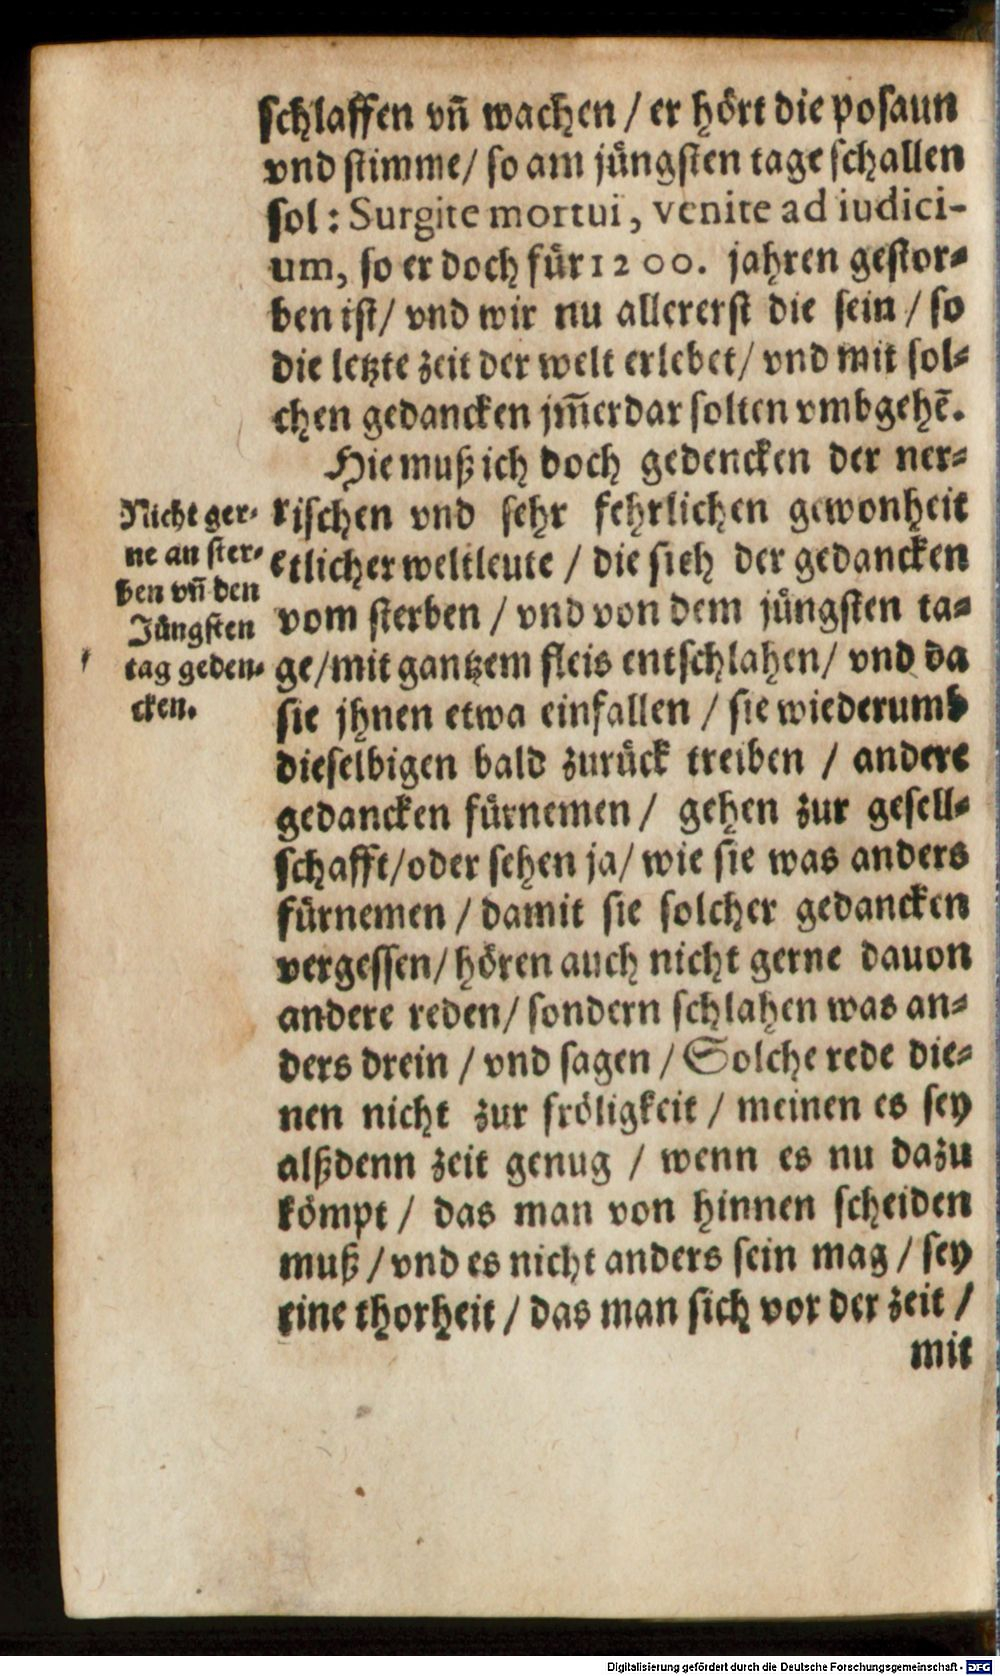 schlaffen vñ wachen / er hört die posaun
vnd stimme / so am jüngsten tage schallen
sol : Surgite mortui, venite ad iudici-
um, so er doch für 1200. jahren gestor-
ben ist / vnd wir nu allererst die sein / so
die letzte zeit der welt erlebet / vnd mit sol-
chen gedancken jm̃erdar solten vmbgehẽ.
Hie muß ich doch gedencken der ner-
rischen vnd sehr fehrlichen gewonheit
etlicher weltleute / die sich der gedancken
vom sterben / vnd von dem jüngsten ta-
ge / mit gantzem fleis entschlahen / vnd da
sie jhnen etwa einfallen / sie wiederumb
dieselbigen bald zurück treiben / andere
gedancken fürnemen / gehen zur gesell-
schafft / oder sehen ja / wie sie was anders
fürnemen / damit sie solcher gedancken
vergessen / hören auch nicht gerne dauon
andere reden / sondern schlahen was an-
ders drein / vnd sagen / Solche rede die-
nen nicht zur fröligkeit / meinen es sey
alßdenn zeit genug / wenn es nu dazu
kömpt / das man von hinnen scheiden
muß / vnd es nicht anders sein mag / sey
eine thorheit / das man sich vor der zeit /
mit
Nicht ger-
ne an ster-
ben vñ den
Jüngsten
tag geden-
cken.
Digitalisierung gefördert durch die Deutsche Forschungsgemeinschaft - DFG